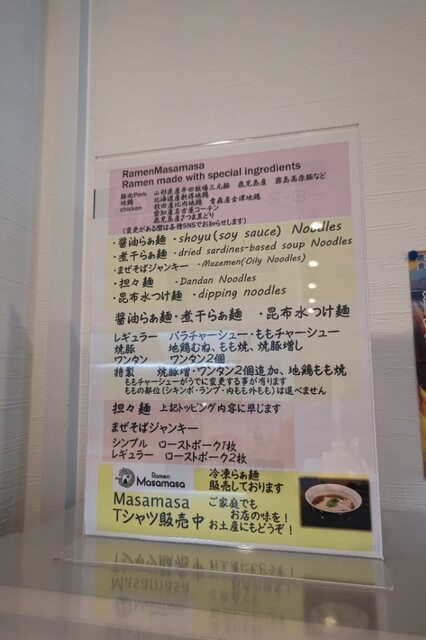 RamenMasamasa
Ramen made with special ingredients
豚肉Pork 山形県産平田牧場三元豚 鹿児島産 霧島高原豚など
地鶏 北海道産新得地鶏 青森産会津地鶏
chicken 秋田産比内地鶏
愛知産名古屋コーチン
鹿児島産さつま黒どり
(変更がある際は各種SNSでお知らせします)
・醤油らぁ麺・shoyu(soy sauce) Noodles
・煮干らぁ麺・dried sardines-based soup Noodles
・まぜそばジャンキー ・Mazemen(Oily Noodles)
・担々麺 ・Dandan Noodles
・昆布水つけ麺 ・dipping noodles
醤油らぁ麺・煮干らぁ麺 ・昆布水つけ麺
レギュラー バラチャーシュー・ももチャーシュー
焼豚 地鶏むね、もも焼、焼豚増し
ワンタン ワンタン2個
特製 焼豚増・ワンタン2個追加、地鶏もも焼
ももチャーシューがうでに変更する事が有ります
ももの部位(シキンボ・ランプ・内もも外もも)は選べません
担々麺 上記トッピング内容に準じます
まぜそばジャンキー
シンプル ローストポーク1枚
レギュラー ローストポーク2枚
Ramen
Masamasa
冷凍らぁ麺
販売しております
Masamasa
Tシャツ販売中
ご家庭でも
お店の味を!
お土産にもどうぞ!